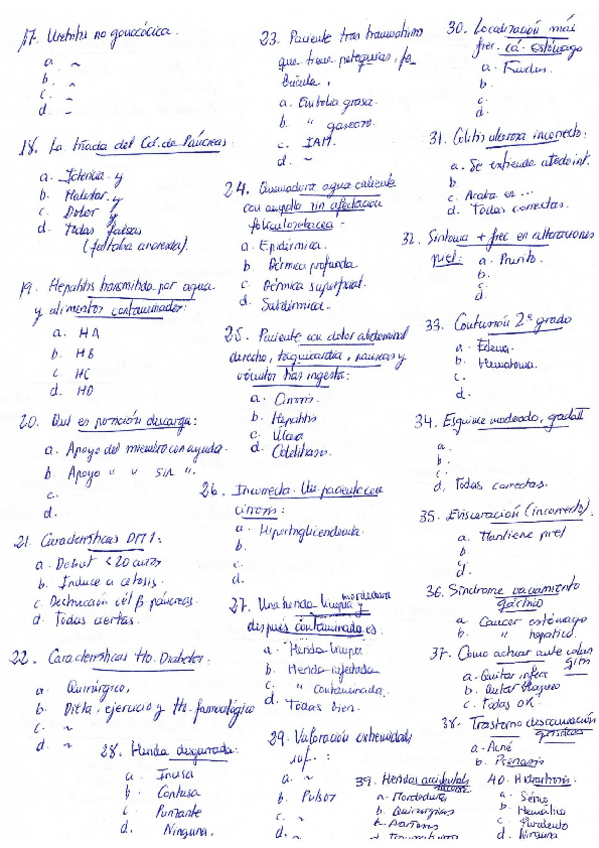 17. Uretritis no gonocócica.
a. ~
b. ~
c. ~
d. ~
18. La tríada del Cá. de Páncreas:
a. Ictericia y
b. Malestar y
c. Dolor y
d. Todas falsas
(faltaba anorexia).
19. Hepatitis transmitida por agua
y alimentos contaminados:
a. HA
b. HB
c. HC
d. HD
20. Qué es posición descarga:
a. Apoyo del miembro con ayuda.
b. Apoyo " " sin ".
c.
d.
21. Características DM1:
a. Debut < 20 años
b. Induce a cetosis.
c. Destrucción cél β páncreas.
d. Todas ciertas.
22. Características tto. Diabetes:
a. Quirúrgico,
b. Dieta, ejercicio y tto. farmacológico
c. ~
d. ~
28. Herida desgarrada:
a. Incisa
b. Contusa
c. Punzante
d. Ninguna.
23. Paciente tras traumatismo
que tiene petequias,
a. Embolia grasa.
b. " gaseosa.
c. IAM.
d. ~
24. Quemadura agua caliente
con ampolla sin afectación
a. Epidérmica.
b. Dérmica profunda.
c. Dérmica superficial.
d. Subdérmica.
25. Paciente con dolor abdominal
derecho, taquicardia, nauseas y
vómitos tras ingesta:
a. Cirrosis.
b. Hepatitis
c. Úlcera
d. Colelitiasis.
26. Incorrecta. Un paciente con
cirrosis:
a.
b.
c.
d.
27. Una herida limpia y mordedura
después contaminada es:
a. Herida limpia.
b. Herida infectada
c. " contaminada.
d. Todas bien.
29. Valoración extremidades
inf. :
a. ~
b. Pulsos
c. ~
d. ~
30. Localización más
frec. cá. estómago
a. Fundus.
b.
c.
d.
31. Colitis ulcerosa incorrecta:
a. Se extiende a todo int.
b
c. Acaba en ...
d. Todas correctas.
32. Síntoma + frec en alteraciones
piel:
a. Prurito.
b.
c.
d.
33. Contusión 2º grado
a. Edema.
b. Hematoma.
c.
d.
34. Esguince moderado, grado II
a.
b.
c.
d. Todas correctas.
35. Evisceración (incorrecta):
a. Mantiene piel
b
c
d.
36. Síndrome vaciamiento
gástrico
a. Cáncer estómago
b. " hepático.
37. Como actuar ante
a. Quitar
b. Quitar
c. Todas OK.
38. Trastorno descamación
a. Acné
b. Psoriasis
39. Heridas accidentales
a. Mordedura
b. Quirúrgicas
c.
d. Traumatismo
40. Hidrartrosis:
a. Seroso
b. Hemático
c. Purulento
d. Ninguna